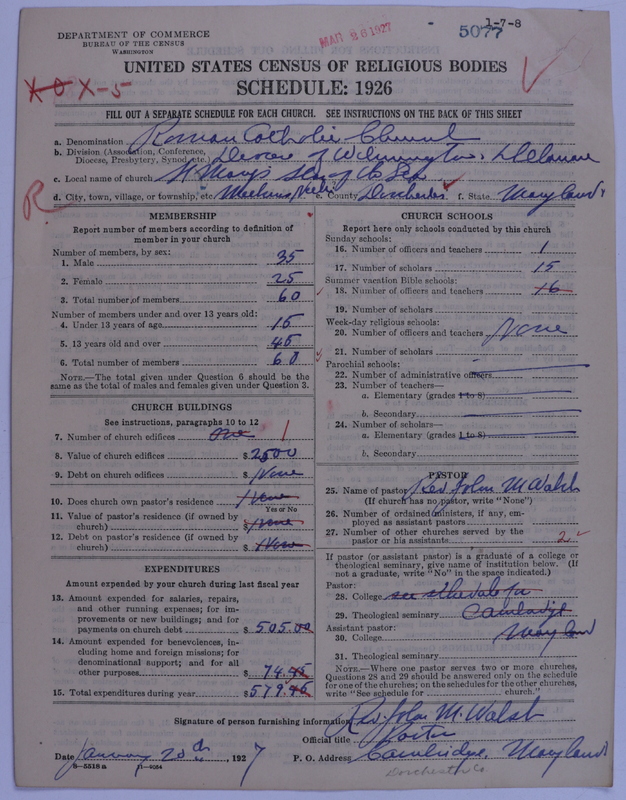 1-7-8
DEPARTMENT OF COMMERCE
BUREAU OF THE CENSUS
WASHINGTON
MAR 26 1927
5077
UNITED STATES CENSUS OF RELIGIOUS BODIES
SCHEDULE: 1926
X-5
FILL OUT A SEPARATE SCHEDULE FOR EACH CHURCH. SEE INSTRUCTIONS ON THE BACK OF THIS SHEET
a. Denomination Roman Catholic Church
b. Division (Association, Conference, Diocese, Presbytery, Synod, etc.) Diocese of Wilmington, Delaware
c. Local name of church St Mary's Star of the Sea
R
d. City, town, village, or township, etc. e. County Dorchester f. State Maryland
MEMBERSHIP
Report number of members according to definition of
member in your church
Number of members, by sex:
1. Male 35
2. Female 25
3. Total number of members 60
Number of members under and over 13 years old:
4. Under 13 years of age 15
5. 13 years old and over 45
6. Total number of members 60
NOTE.—The total given under Question 6 should be the
same as the total of males and females given under Question 3.
CHURCH BUILDINGS
See instructions, paragraphs 10 to 12
7. Number of church edifices one 1
8. Value of church edifices $2500
9. Debt on church edifices $None
10. Does church own pastor's residence None
Yes or No
11. Value of pastor's residence (if owned by
church) $None
12. Debt on pastor's residence (if owned by
church) $None
EXPENDITURES
Amount expended by your church during last fiscal year
13. Amount expended for salaries, repairs,
and other running expenses; for im-
provements or new buildings; and for
payments on church debt $505.00
14. Amount expended for benevolences, in-
cluding home and foreign missions; for
denominational support; and for all
other purposes $74.45
15. Total expenditures during year $579.45
CHURCH SCHOOLS
Report here only schools conducted by this church
Sunday schools:
16. Number of officers and teachers 1
17. Number of scholars 15
Summer vacation Bible schools:
18. Number of officers and teachers 16
19. Number of scholars
Week-day religious schools:
20. Number of officers and teachers None
21. Number of scholars
Parochial schools:
22. Number of administrative officers
23. Number of teachers—
a. Elementary (grades 1 to 8)
b. Secondary
24. Number of scholars—
a. Elementary (grades 1 to 8)
b. Secondary
PASTOR
25. Name of pastor Rev. John M. Walsh
(If church has no pastor, write "None")
26. Number of ordained ministers, if any, em-
ployed as assistant pastors
27. Number of other churches served by the
pastor or his assistants 2
If pastor (or assistant pastor) is a graduate of a college or
theological seminary, give name of institution below. (If
not a graduate, write "No" in the space indicated.)
Pastor:
28. College see schedule for
29. Theological seminary Cambridge
Assistant pastor:
30. College Maryland
31. Theological seminary
NOTE.—Where one pastor serves two or more churches,
Questions 28 and 29 should be answered only on the schedule
for one of the churches; on the schedules for the other churches,
write "See schedule for church."
Signature of person furnishing information Rev. John M. Walsh
Official title Pastor
Date January 20th, 1927 P. O. Address Cambridge, Maryland
8-5518 a 11-4054
Dorchester Co